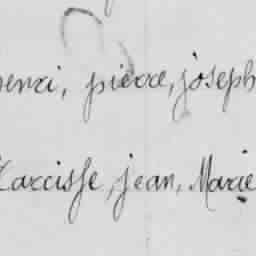 henri, pierre, joseph
Narcisse, jean, Marie